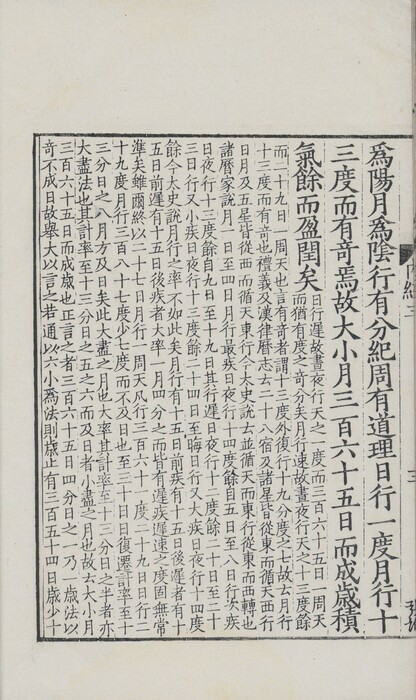 為陽月為陰行有分紀周有道理日行一度月行十
三度而有奇焉故大小月三百六十五日而成歲積
氣餘而盈閏矣日行遲故晝夜行天之一度而三百六十五日一周天
而猶有度之奇分矣月行速故晝夜行天之十三度餘
而二十九日一周天也言有奇者謂十三度外復行十九分度之七故云月行
十三度而有奇也禮義及漢律曆志云二十八宿及諸星皆從東而循天西行
日月及五星皆從西而循天東行今太史說云並循天而東行從東而西轉也
諸曆家說月一日至四日月行最疾日夜行十四度餘自五日至八日行次疾
日夜行十三度餘自九日至十九日其行遲日夜行十二度餘二十日至二十
三日行又小疾日夜行十三度餘二十四日至晦日行又大疾日夜行十四度
餘今太史說月行之率不如此矣月行有十五日前疾有十五日後遲者有十
五日前遲有十五日後疾者大率一月四分之而皆有遲疾遲速之度固無常
準矣雖爾終以二十七日月行一周天凡行三百六十一度二十九日日行二
十九度月行三百八十七度少七度而不及日也至三十日日復遷計率至十
三分日之八月方及日矣此大盡之月也大率其計率至十三分日之半者亦
大盡法也其計率至十三分日之五之六而及日者小盡之月也故云大小月
三百六十五日而成歲也正言之者三百六十五日四分日之一乃一歲法以
奇不成日故舉大以言之若通以六小為法則歲止有三百五十四日歲少十